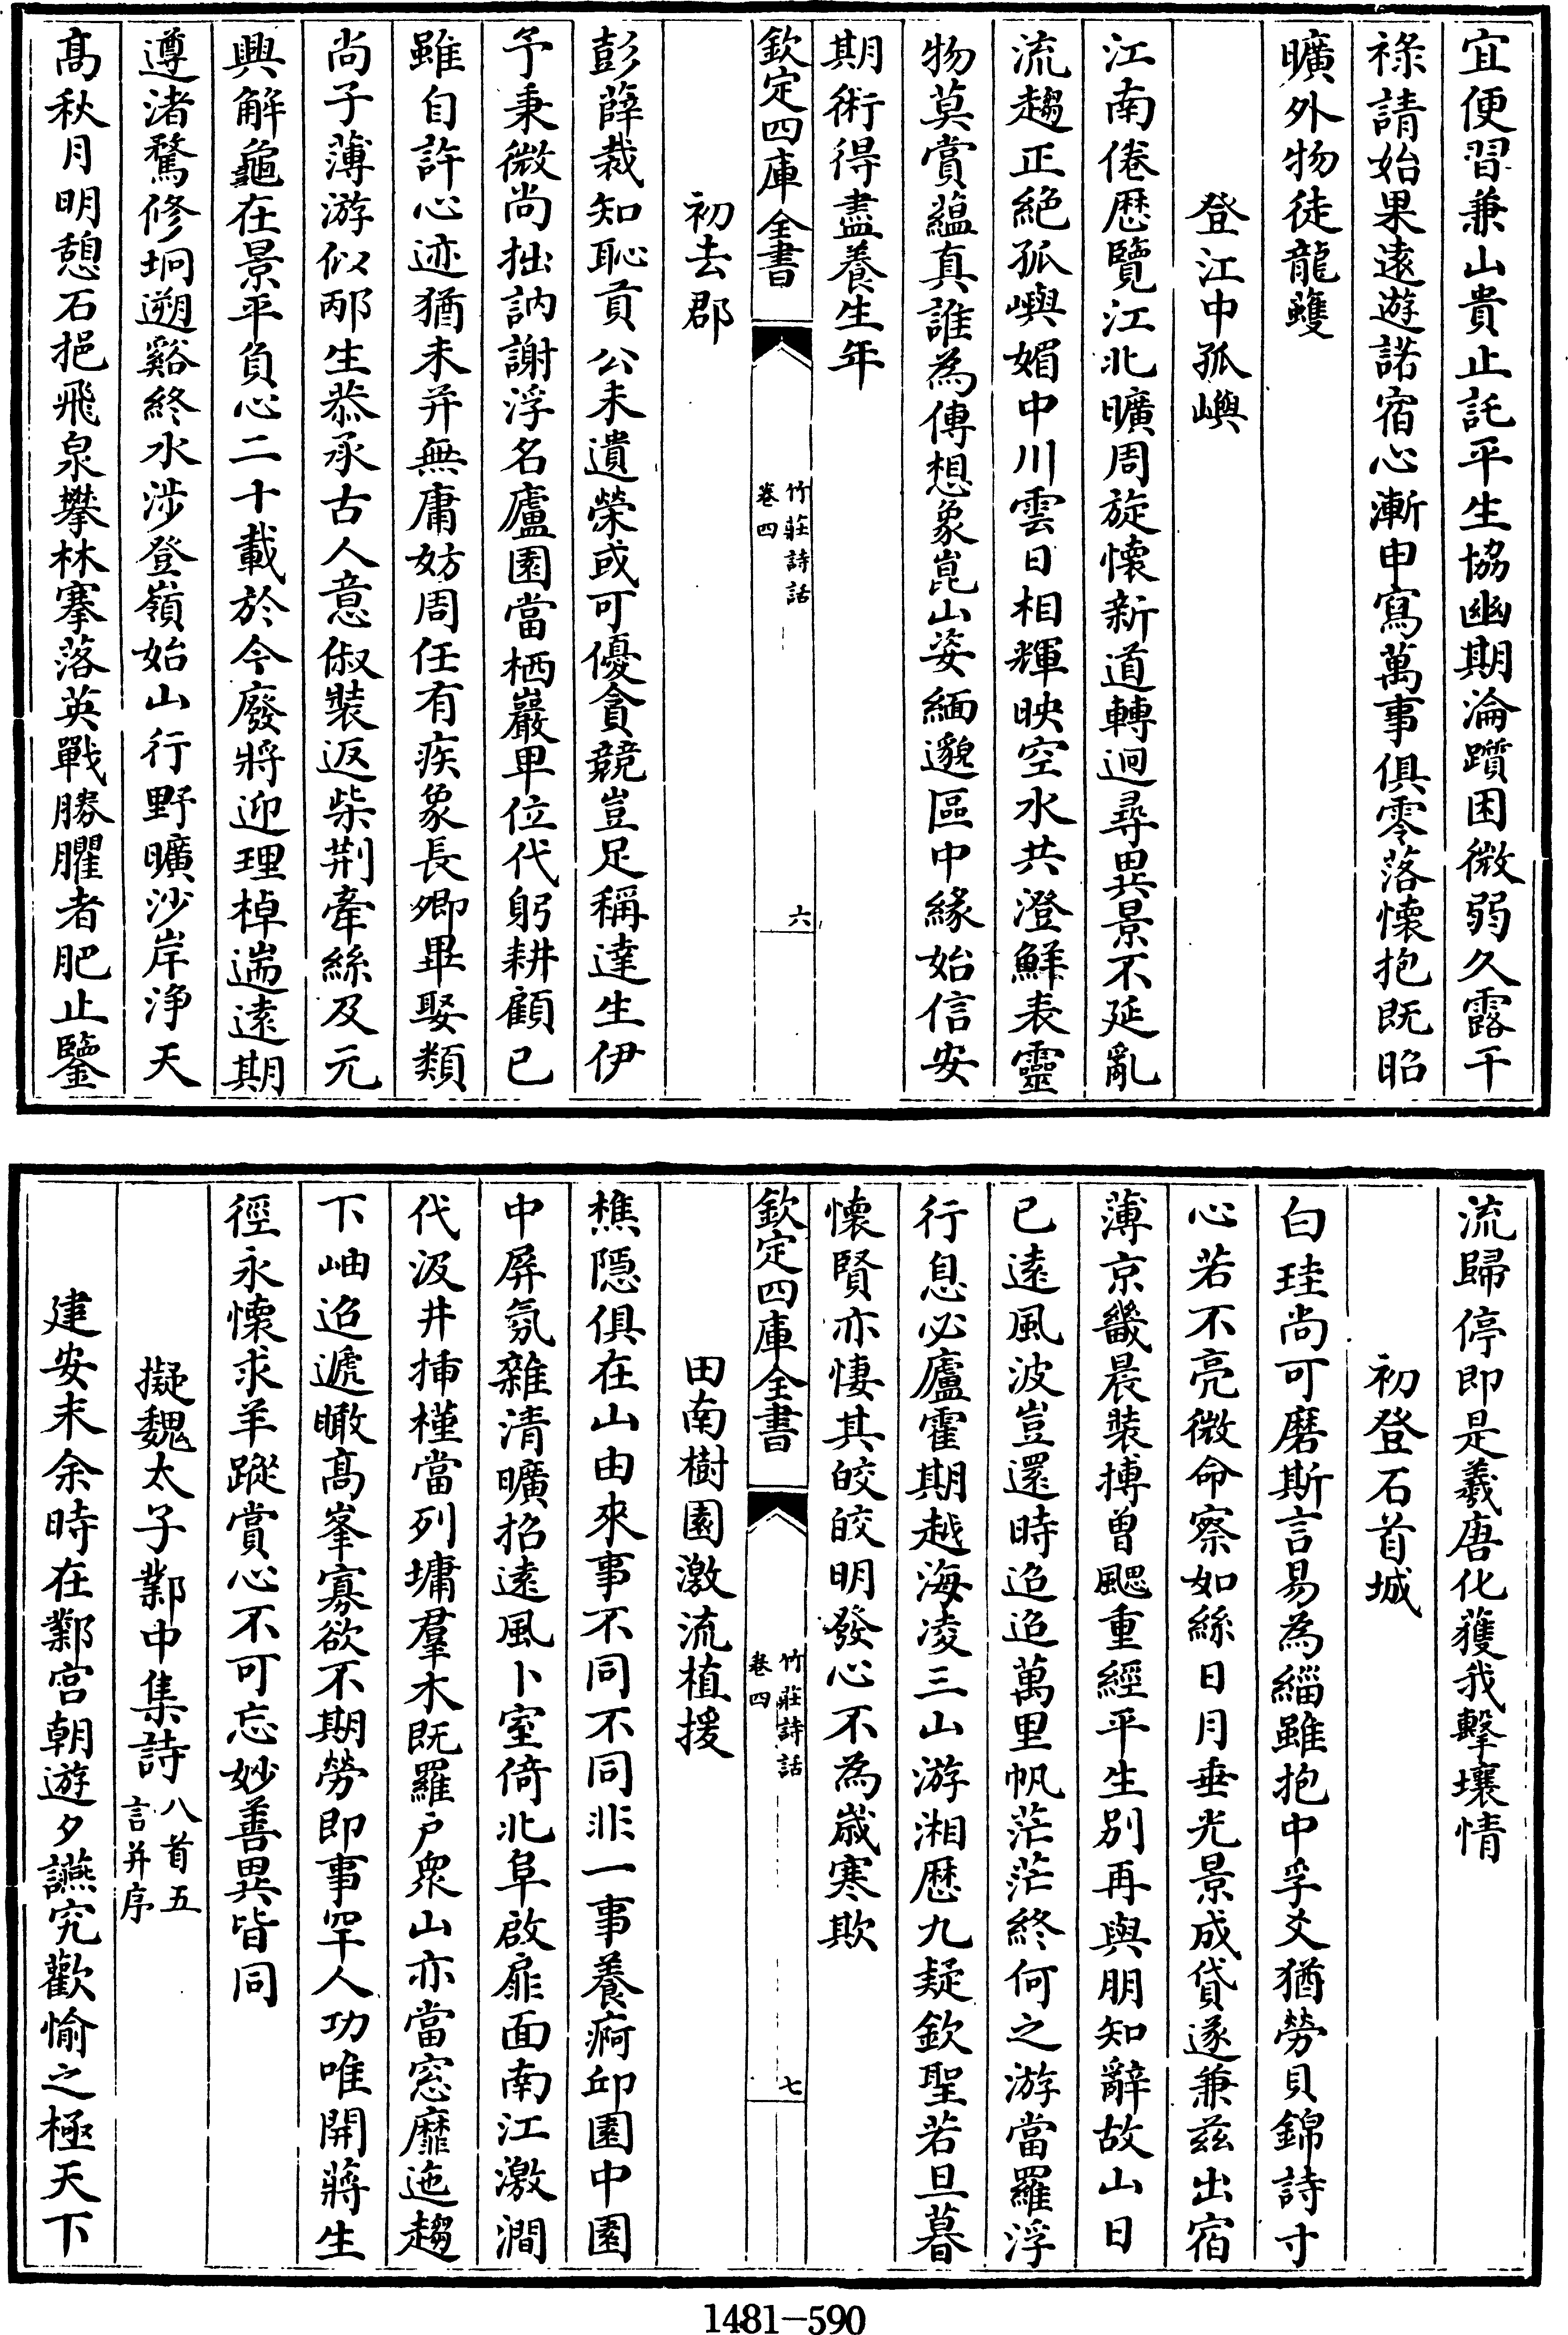 宜便習兼山貴止託平生協幽期淪躓困微弱久露干
祿請始果遠遊諾宿心漸申寫萬事俱零落懷抱既昭
曠外物徒龍蠖
登江中孤嶼
江南倦歷覽江北曠周旋懷新道轉迥尋異景不延亂
流趨正絕孤嶼媚中川雲日相輝映空水共澄鮮表靈
物莫賞蘊真誰為傳想象崑山姿緬邈區中緣始信安
期術得盡養生年
欽定四庫全書
竹莊詩話
卷四
六
初去郡
彭薛裁知恥貢公未遺榮或可優貪競豈足稱達生伊
予秉微尚拙訥謝浮名廬園當栖巖卑位代躬耕顧已
雖自許心迹猶未并無庸妨周任有疾象長卿畢娶類
尚子薄游似邴生恭承古人意俶裝返柴荆牽絲及元
興解龜在景平負心二十載於今廢將迎理棹遄遠期
遵渚騖修坰遡谿終水涉登嶺始山行野曠沙岸浄天
髙秋月明憩石挹飛泉攀林搴落英戰勝臞者肥止鑒
流歸停即是羲唐化獲我擊壤情
初登石首城
白珪尚可磨斯言易為緇雖抱中孚爻猶勞貝錦詩寸
心若不亮微命察如絲日月垂光景成貸遂兼兹出宿
薄京畿晨裝搏曾颸重經平生别再與朋知辭故山日
已遠風波豈還時迢迢萬里帆茫茫終何之游當羅浮
行息必廬霍期越海凌三山游湘歷九疑欽聖若旦暮
懷賢亦悽其皎皎明發心不為歲寒欺
欽定四庫全書
竹莊詩話
卷四
七
田南樹園激流植援
樵隱俱在山由來事不同不同非一事養痾邱園中園
中屏氛雜清曠招遠風卜室倚北阜啟扉面南江激澗
代汲井挿槿當列墉羣木既羅户衆山亦當窓靡迤趨
下岫迢遞瞰髙峯寡欲不期勞即事罕人功唯開蔣生
徑永懷求羊蹤賞心不可忘妙善異皆同
擬魏太子鄴中集詩八首五
言并序
建安末余時在鄴宫朝遊夕讌究歡愉之極天下
1481-590